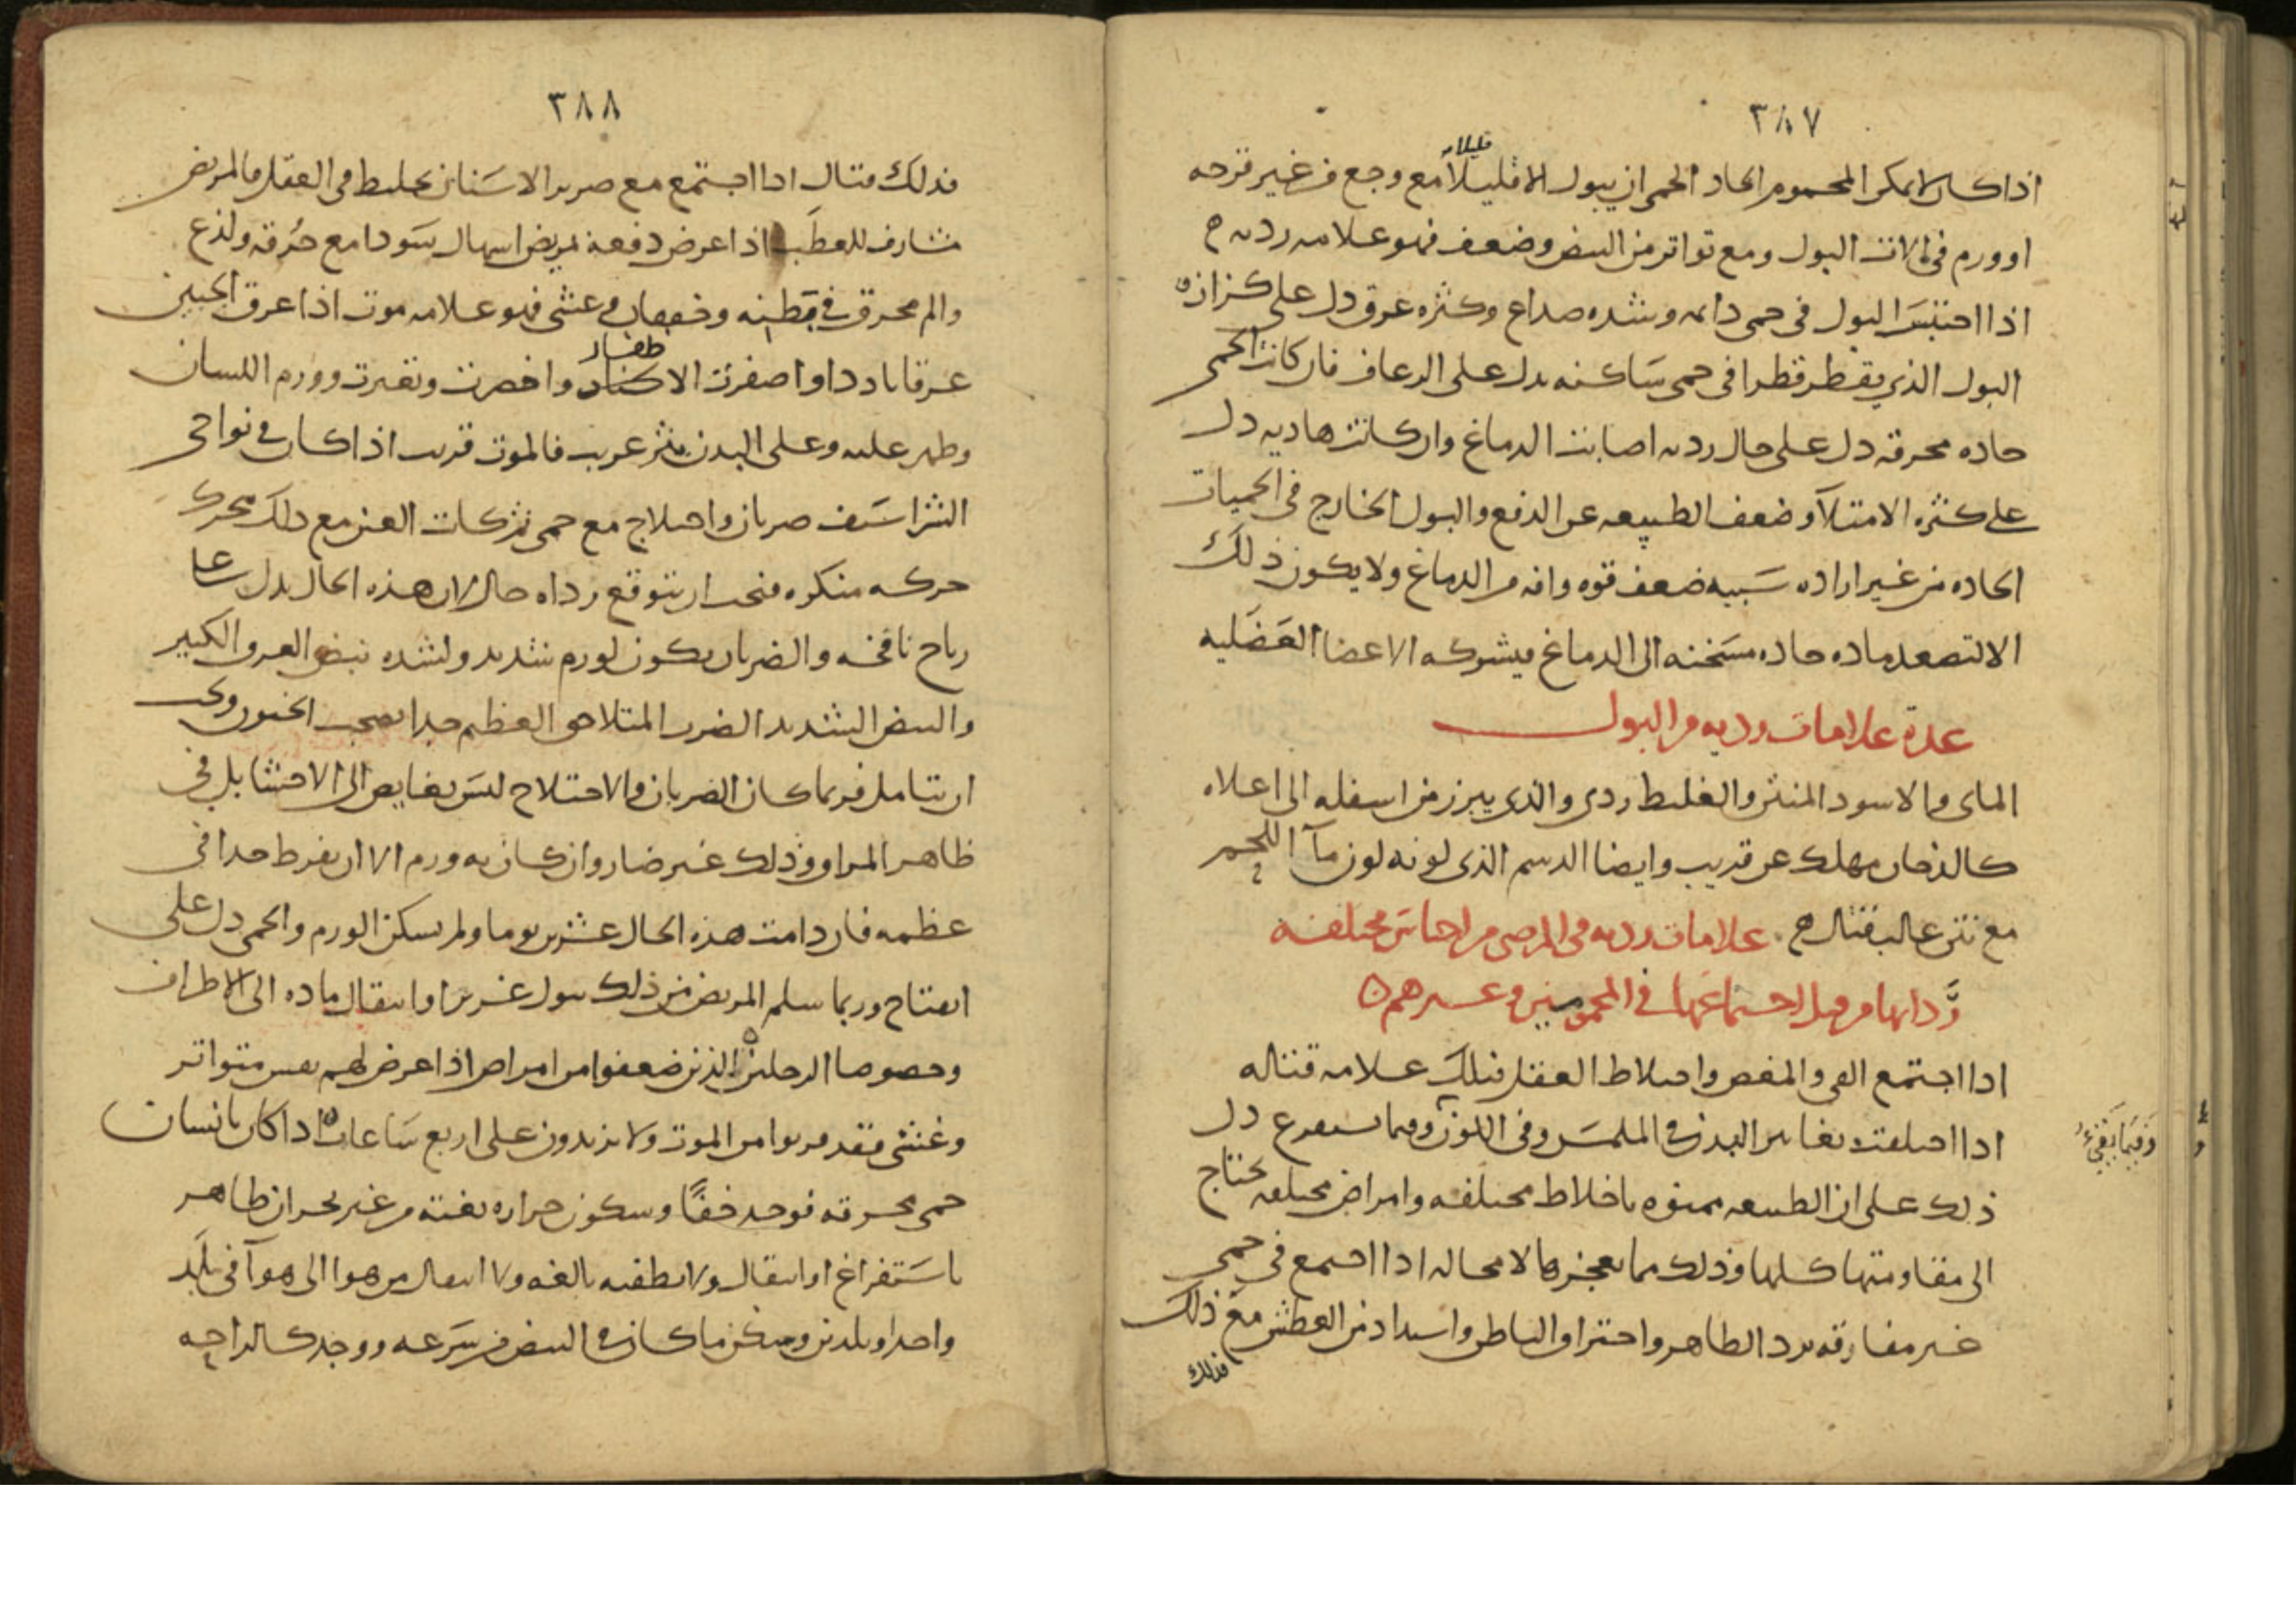 ٣٨٧
قليلا
اذا كان لا يمكن المحموم الحاد الحمى ان يبول الا قليلا مع وجع من غير قرحه
او ورم فى الات البول ومع تواتر من النبض وضعف فهو علامه رديه
اذا احتبس البول فى حمى دايمه وشده صداع وكثره عرق دل على كزاز
البول الذى يقطر قطرا فى حمى ساكنه يدل على الرعاف فان كانت الحمى
حاده محرقه دل على حال رديه اصابت الدماغ وان كانت هاديه دل
على كثره الامتلآ وضعف الطبيعه عن الدفع والبول الخارج فى الحميات
الحاده من غير اراده سببه ضعف قوه وافه من الدماغ ولا يكون ذلك
الا لتصعد ماده حاده مسخنه الى الدماغ فيشركه الاعضا العضليه
عدة علامات رديه من البول
الماى والاسود المنتن والغليط ردى والذى يبرز من اسفله الى اعلاه
كالدخان مهلك عن قريب وايضا الدسم الذى لونه لون مآ اللحم
مع نتن غالب قتال علامات رديه فى المرضى من اجناس مختلفه
رداتها من قبل اجتماعها فى المحمومين وغيرهم
ادا اجتمع القى والمغص واختلاط العقل فتلك علامه قتاله
ادا اختلفت تغاير البدن فى الملمس وفى اللون وفيما يستفرع دل
وفيما يقىء
ذلك على ان الطبيعه ممنوه باخلاط مختلفه وامراض مختلفه تحتاج
الى مقاومتها كلها وذلك مما يعجزها لا محاله ادا اجتمع فى حمى
غير مفارقه برد الطاهر واحتراق الباطن واشتداد من العطش مع ذلك
فذلك
٣٨٨
فذلك قتال ادا اجتمع مع صرير الاسنان تخليط فى العقل فالمريض
مشارف للعطب اذا عرض دفعة لمريض اسهال سودا مع حرقه ولذع
والم محرق فى بطنه وخفقان وغشى فهو علامه موت اذا عرق الجبين
طفار
عرقا باردا واصفرت الا واخضرت وتغيرت وورم اللسان
وطهر عليه وعلى البدن بثر غريب فالموت قريب اذا كان فى نواحى
الشراسيف ضربان واختلاج مع حمى ثم كانت العين مع ذلك تتحرك
حركه منكره فيجب ان يتوقع رداه حال لان هذه الحال يدل على
رياح نافخه والضربان يكون لورم شديد ولشده نبض العرق الكبير
والنبض الشديد الضرب المتلاحق العظيم جدا يصحب الجنون ويجب
ان يتامل فربما كان الضربان والاختلاج ليس بغايص الى الاحشا بل فى
ظاهر المراق وذلك غير ضار وان كان به ورم الا ان يفرط جدا فى
عظمه فان دامت هذه الحال عشرين يوما ولم يسكن الورم والحمى دل على
انفتاح وربما سلم المريض من ذلك ببول غزير او انتقال ماده الى الاطراف
وخصوصا الرجلين الذين ضعفوا من امراض اذا عرض لهم نفس متواتر
وغشى فقد قربوا من الموت ولا يزيدون على اربع ساعات اذا كان بانسان
حمى محرقه فوجد خفا وسكون حراره بغتة من غير بحران طاهر
باستفراغ او انتقال ولا تطفيه بالغه ولا انتقال من هوا الى هوآ فى بلد
واحد او بلدين وسكن ما كان فى النبض من سرعه ووجد كالراحه